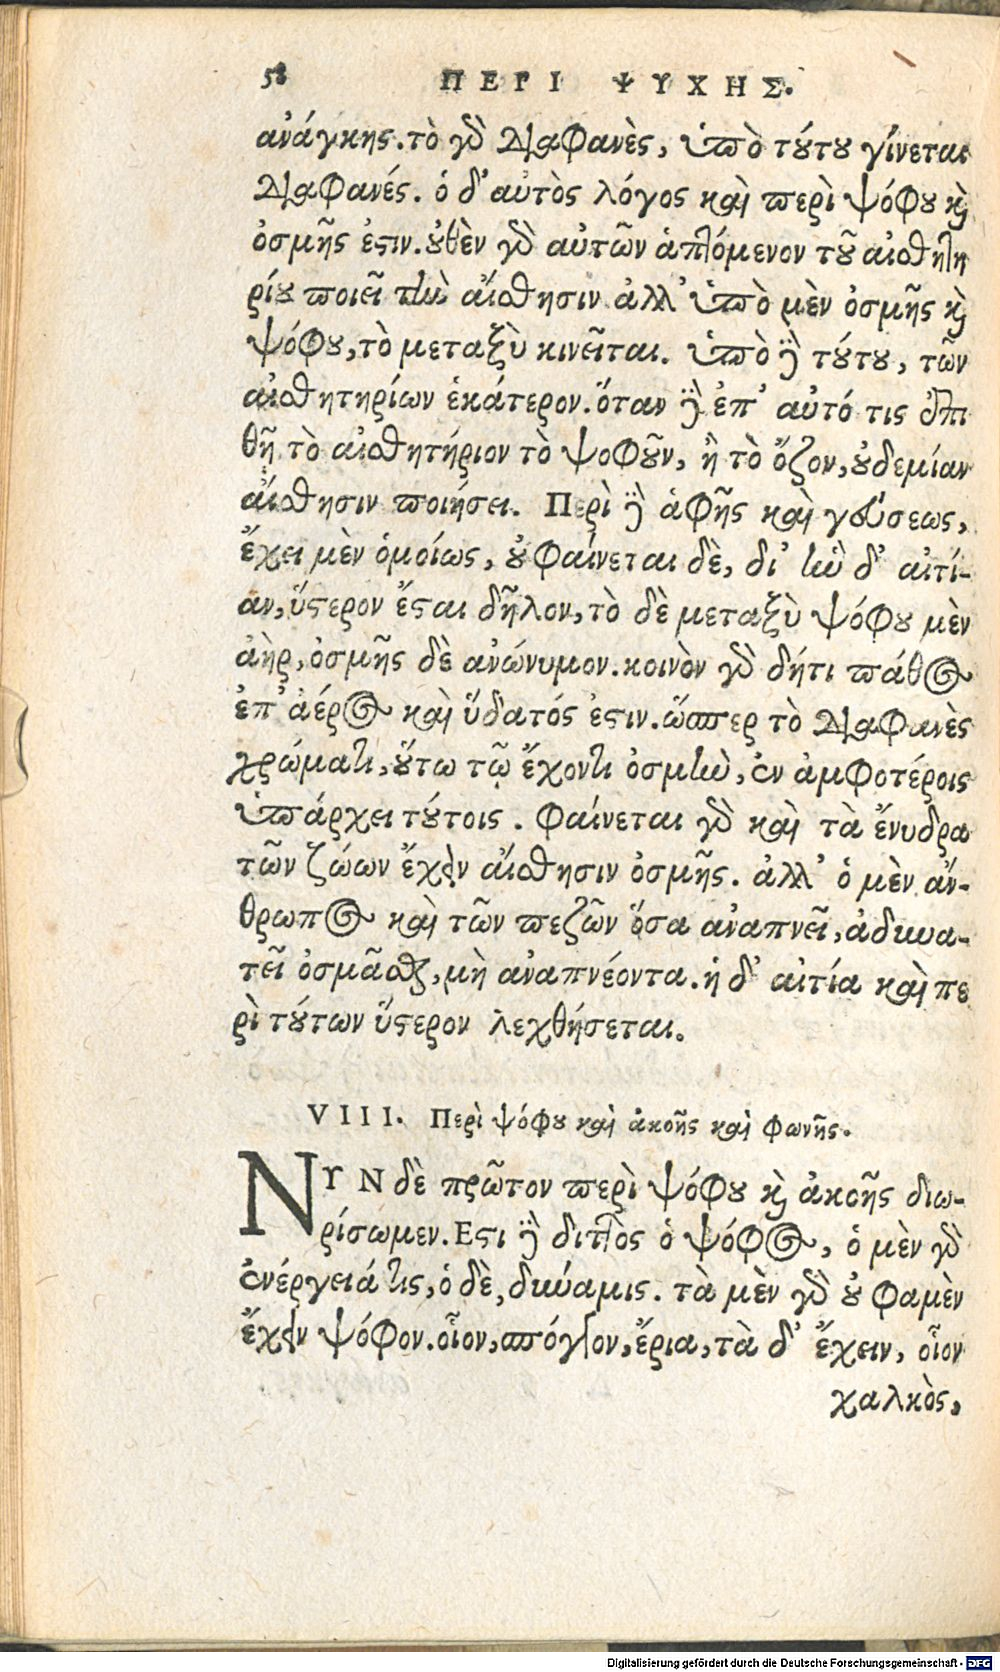 58 ΠΕΡΙ ΨΥΧΗΣ.
ἀνάγκης. τὸ γὰρ διαφανὲς, ὑπὸ τούτου γίνεται
διαφανές. ὁ δ' αὐτὸς λόγος καὶ περὶ ψόφου καὶ
ὀσμῆς ἐστιν. οὐθὲν γὰρ αὐτῶν ἁπτόμενον τοῦ αἰσθητη
ρίου ποιεῖ τὴν αἴσθησιν ἀλλ' ὑπὸ μὲν ὀσμῆς καὶ
ψόφου, τὸ μεταξὺ κινεῖται. ὑπὸ δὲ τούτου, τῶν
αἰσθητηρίων ἑκάτερον. ὅταν δὲ ἐπ' αὐτό τις ἐπι
θῇ τὸ αἰσθητήριον τὸ ψοφοῦν, ἢ τὸ ὄζον, οὐδεμίαν
αἴσθησιν ποιήσει. Περὶ δὲ ἁφῆς καὶ γεύσεως,
ἔχει μὲν ὁμοίως, οὐ φαίνεται δὲ, δι' ἣν δ' αἰτί-
αν, ὕστερον ἔσται δῆλον, τὸ δὲ μεταξὺ ψόφου μὲν
ἀὴρ, ὀσμῆς δὲ ἀνώνυμον. κοινὸν γὰρ δήτι πάθος
ἐπ' ἀέρος καὶ ὕδατός ἐστιν. ὥσπερ τὸ διαφανὲς
χρώματι, οὕτω τῷ ἔχοντι ὀσμὴν, ἐν ἀμφοτέροις
ὑπάρχει τούτοις. Φαίνεται γὰρ καὶ τὰ ἔνυδρα
τῶν ζώων ἔχειν αἴσθησιν ὀσμῆς. ἀλλ' ὁ μὲν ἄν-
θρωπος καὶ τῶν πεζῶν ὅσα ἀναπνεῖ, ἀδυνα-
τεῖ ὀσμᾶσθαι, μὴ ἀναπνέοντα. ἡ δ' αἰτία καὶ πε
ρὶ τούτων ὕστερον λεχθήσεται.
VIII. Περὶ ψόφου καὶ ἀκοῆς καὶ φωνῆς.
ΝΥΝ δὲ πρῶτον περὶ ψόφου καὶ ἀκοῆς διω-
ρίσωμεν. Εστι δὲ διττὸς ὁ ψόφος, ὁ μὲν γὰρ
ἐνέργειά τις, ὁ δὲ, δύναμις. τὰ μὲν γὰρ οὐ φαμὲν
ἔχειν ψόφον. οἷον, σπόγγον, ἔρια, τὰ δ' ἔχειν, οἷον
χαλκὸς,
Digitalisierung gefördert durch die Deutsche Forschungsgemeinschaft - DFG